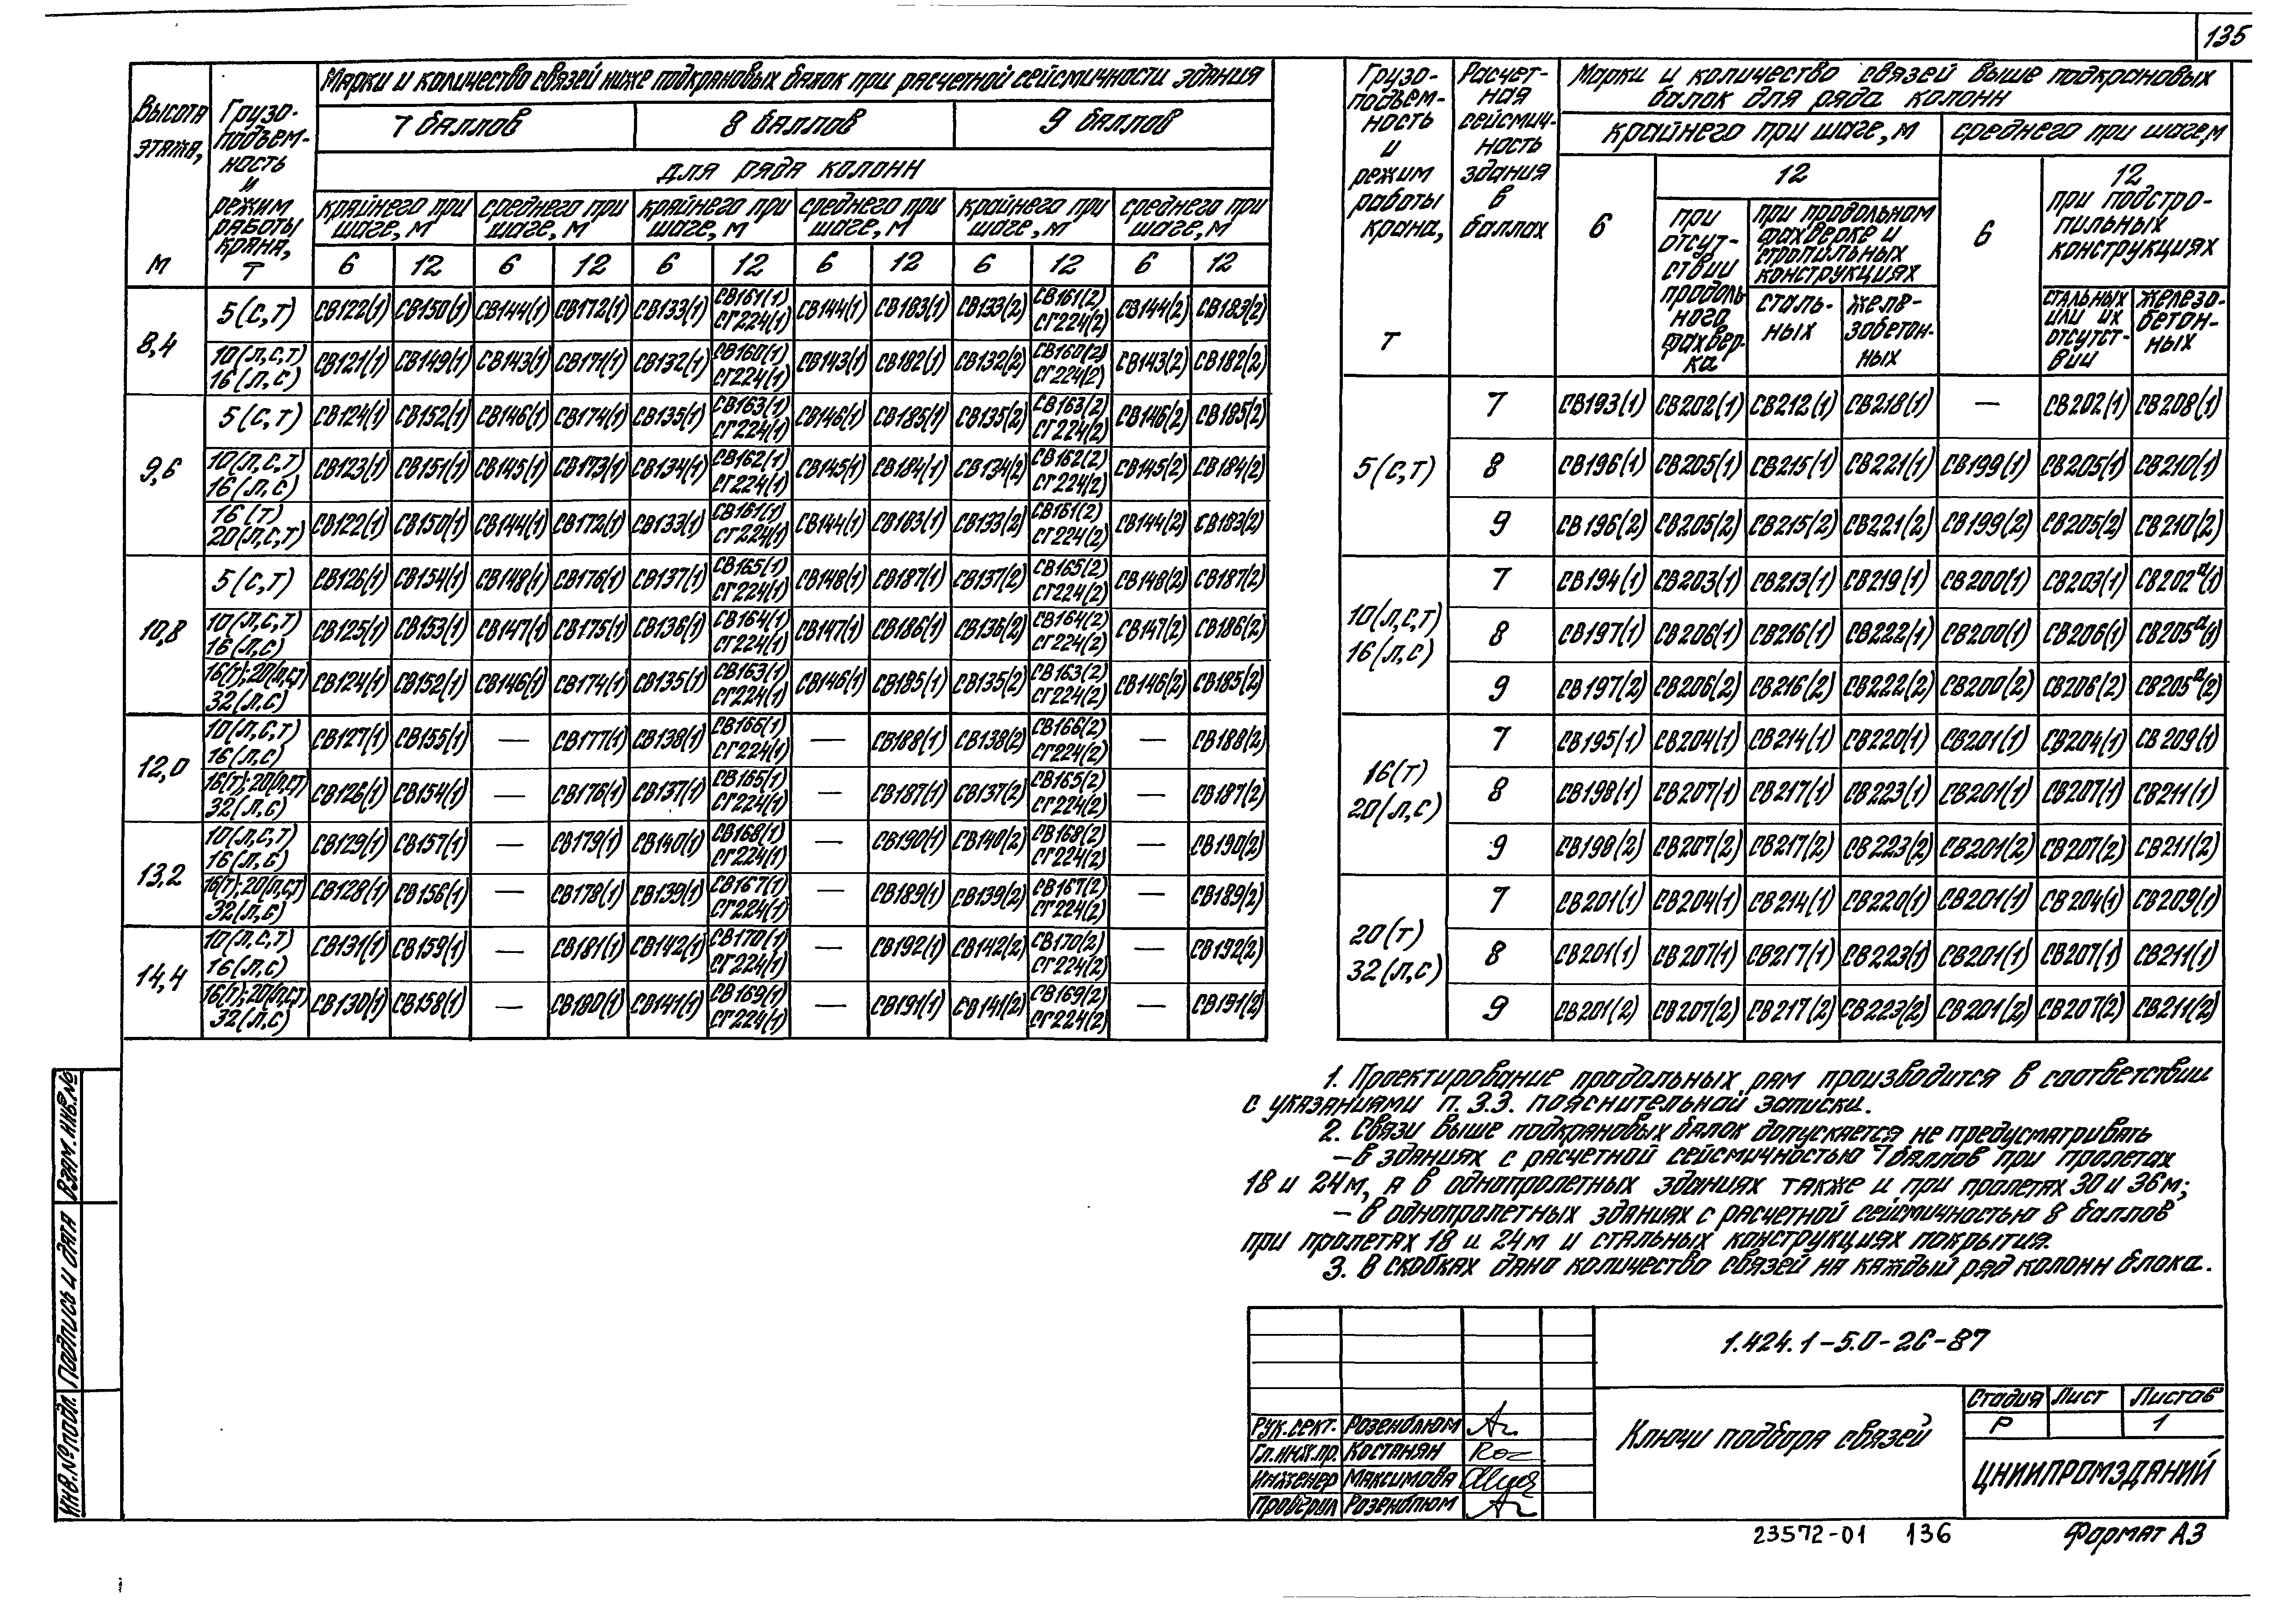 135
Высота этажа, м
Грузо-подъем-ность и режим работы крана, т
Марки и количество связей ниже подкрановых балок при расчетной сейсмичности здания
7 баллов 8 баллов 9 баллов
для ряда колонн
крайнего при шаге, м среднего при шаге, м крайнего при шаге, м среднего при шаге, м крайнего при шаге, м среднего при шаге, м
6 12 6 12 6 12 6 12 6 12 6 12
8,4
5(с,т) СВ122(1) СВ150(1) СВ144(1) СВ172(1) СВ133(1) СВ161(1) СГ224(1) СВ144(1) СВ183(1) СВ133(2) СВ161(2) СГ224(2) СВ144(2) СВ183(2)
10(л,с,т) 16(л,с) СВ121(1) СВ149(1) СВ143(1) СВ171(1) СВ132(1) СВ160(1) СГ224(1) СВ143(1) СВ182(1) СВ132(2) СВ160(2) СГ224(2) СВ143(2) СВ182(2)
9,6
5(с,т) СВ124(1) СВ152(1) СВ146(1) СВ174(1) СВ135(1) СВ163(1) СГ224(1) СВ146(1) СВ185(1) СВ135(2) СВ163(2) СГ224(2) СВ146(2) СВ185(2)
10(л,с,т) 16(л,с) СВ123(1) СВ151(1) СВ145(1) СВ173(1) СВ134(1) СВ162(1) СГ224(1) СВ145(1) СВ184(1) СВ134(2) СВ162(2) СГ224(2) СВ145(2) СВ184(2)
16(т) 20(л,с,т) СВ122(1) СВ150(1) СВ144(1) СВ172(1) СВ133(1) СВ161(1) СГ224(1) СВ144(1) СВ183(1) СВ133(2) СВ161(2) СГ224(2) СВ144(2) СВ183(2)
10,8
5(с,т) СВ126(1) СВ154(1) СВ148(1) СВ176(1) СВ137(1) СВ165(1) СГ224(1) СВ148(1) СВ187(1) СВ137(2) СВ165(2) СГ224(2) СВ148(2) СВ187(2)
10(л,с,т) 16(л,с) СВ125(1) СВ153(1) СВ147(1) СВ175(1) СВ136(1) СВ164(1) СГ224(1) СВ147(1) СВ186(1) СВ136(2) СВ164(2) СГ224(2) СВ147(2) СВ186(2)
16(т);20(л,с,т) 32(л,с) СВ124(1) СВ152(1) СВ146(1) СВ174(1) СВ135(1) СВ163(1) СГ224(1) СВ146(1) СВ185(1) СВ135(2) СВ163(2) СГ224(2) СВ146(2) СВ185(2)
12,0
10(л,с,т) 16(л,с) СВ127(1) СВ155(1) — СВ177(1) СВ138(1) СВ166(1) СГ224(1) — СВ188(1) СВ138(2) СВ166(2) СГ224(2) — СВ188(2)
16(т);20(л,с,т) 32(л,с) СВ126(1) СВ154(1) — СВ176(1) СВ137(1) СВ165(1) СГ224(1) — СВ187(1) СВ137(2) СВ165(2) СГ224(2) — СВ187(2)
13,2
10(л,с,т) 16(л,с) СВ129(1) СВ157(1) — СВ179(1) СВ140(1) СВ168(1) СГ224(1) — СВ190(1) СВ140(2) СВ168(2) СГ224(2) — СВ190(2)
16(т);20(л,с,т) 32(л,с) СВ128(1) СВ156(1) — СВ178(1) СВ139(1) СВ167(1) СГ224(1) — СВ189(1) СВ139(2) СВ167(2) СГ224(2) — СВ189(2)
14,4
10(л,с,т) 16(л,с) СВ131(1) СВ159(1) — СВ181(1) СВ142(1) СВ170(1) СГ224(1) — СВ192(1) СВ142(2) СВ170(2) СГ224(2) — СВ192(2)
16(т);20(л,с,т) 32(л,с) СВ130(1) СВ158(1) — СВ180(1) СВ141(1) СВ169(1) СГ224(1) — СВ191(1) СВ141(2) СВ169(2) СГ224(2) — СВ191(2)
Грузо-подъем-ность и режим работы крана, т
Расчет-ная сейсмич-ность здания в баллах
Марки и количество связей выше подкрановых балок для ряда колонн
крайнего при шаге, м среднего при шаге, м
6 12 6 12
при отсут-ствии продоль ного фахвер-ка
при продольном фахверке и стропильных конструкциях
сталь-ных желе-зобетон-ных
при подстро-пильных конструкциях
стальных или их отсутст-вии железо-бетон-ных
5(с,т)
7 СВ193(1) СВ202(1) СВ212(1) СВ218(1) — СВ202(1) СВ208(1)
8 СВ196(1) СВ205(1) СВ215(1) СВ221(1) СВ199(1) СВ205(1) СВ210(1)
9 СВ196(2) СВ205(2) СВ215(2) СВ221(2) СВ199(2) СВ205(2) СВ210(2)
10(л,с,т) 16(л,с)
7 СВ194(1) СВ203(1) СВ213(1) СВ219(1) СВ200(1) СВ203(1) СВ202а(1)
8 СВ197(1) СВ206(1) СВ216(1) СВ222(1) СВ200(1) СВ206(1) СВ205а(1)
9 СВ197(2) СВ206(2) СВ216(2) СВ222(2) СВ200(2) СВ206(2) СВ205а(2)
16(т) 20(л,с)
7 СВ195(1) СВ204(1) СВ214(1) СВ220(1) СВ201(1) СВ204(1) СВ209(1)
8 СВ198(1) СВ207(1) СВ217(1) СВ223(1) СВ201(1) СВ207(1) СВ211(1)
9 СВ198(2) СВ207(2) СВ217(2) СВ223(2) СВ201(2) СВ207(2) СВ211(2)
20(т) 32(л,с)
7 СВ201(1) СВ204(1) СВ214(1) СВ220(1) СВ201(1) СВ204(1) СВ209(1)
8 СВ201(1) СВ207(1) СВ217(1) СВ223(1) СВ201(1) СВ207(1) СВ211(1)
9 СВ201(2) СВ207(2) СВ217(2) СВ223(2) СВ201(2) СВ207(2) СВ211(2)
1. Проектирование продольных рам производится в соответствии
с указаниями п. 3.3. пояснительной записки.
2. Связи выше подкрановых балок допускается не предусматривать
— в зданиях с расчетной сейсмичностью 7 баллов при пролетах
18 и 24м, а в однопролетных зданиях также и при пролетах 30 и 36м;
— в однопролетных зданиях с расчетной сейсмичностью 8 баллов
при пролетах 18 и 24м и стальных конструкциях покрытия.
3. В скобках дано количество связей на каждый ряд колонн блока.
Взам. инв. №
Подпись и дата
Инв. № подл.
1.424.1-5.0-2С-87
Рук. сект. Розенблюм
Гл. инж. пр. Костанян
Инженер Максимова
Проверил Розенблюм
Ключи подбора связей
Стадия Лист Листов
Р 1
ЦНИИПРОМЗДАНИЙ
23572-01 136
Формат А3